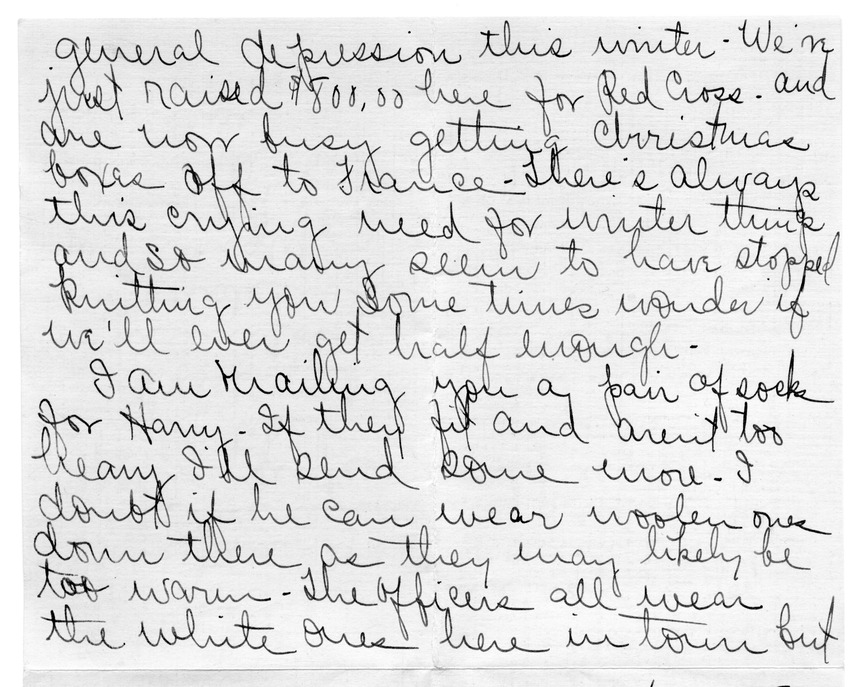 general depression this winter - We've
just raised $800,00 here for Red Cross. and
are now busy getting Christmas
boxes off to France - There's always
this crying need for winter things
and so many seem to have stopped
knitting you some times wonder if
we'll ever get half enough -
I am mailing you a pair of socks
for Harry - If they fit and aren't too
heavy I'll send some more - I
doubt if he can wear woolen ones
down there as they may likely be
too warm - The officers all wear
the white ones here in town but